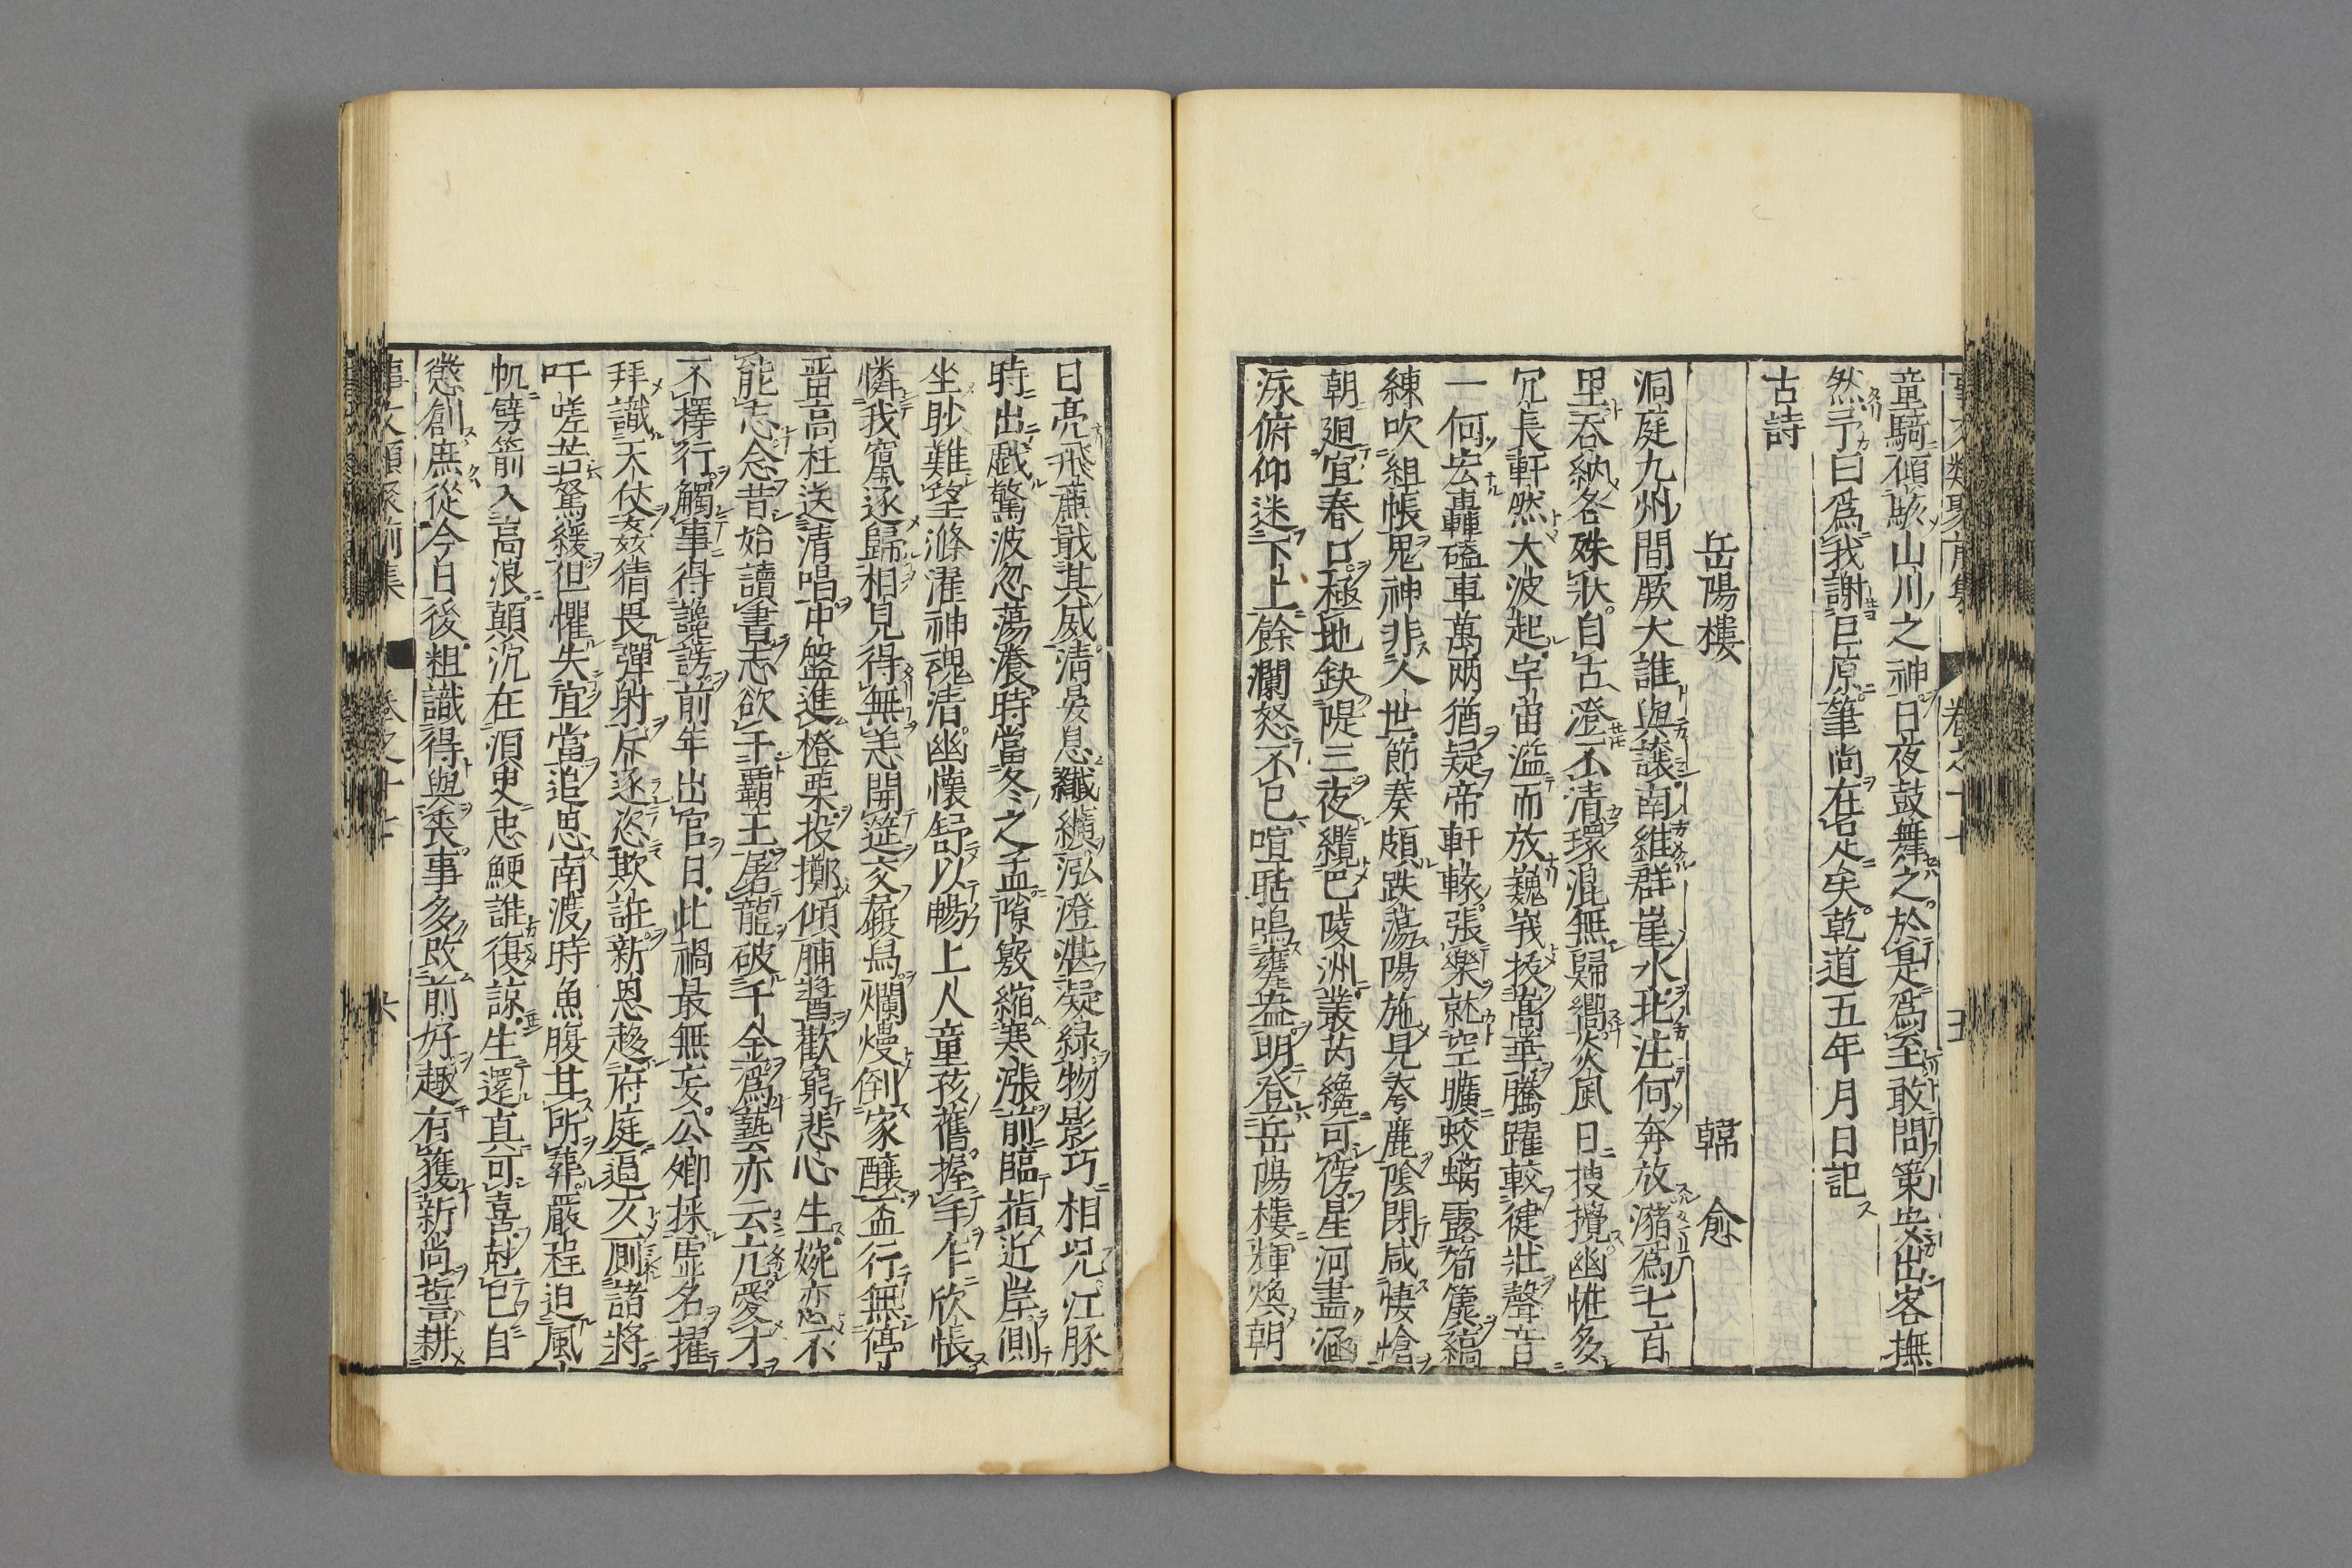 童騎傾駭山川之神日夜鼓舞之於是爲至敢問策安出客撫
然予曰爲我謝巨原筆尚在足矣乾道五年月日記
古詩
岳陽樓 韓愈
洞庭九州間厥大誰與讓南維群崖水北注何奔放瀦爲七百
里吞納各殊狀自古澄不清環混無歸嚮炎風日搜攪幽怪多
冗長軒然大波起宇宙溢而放巍峩拔嵩華騰躍較徤壯聲音
一何宏轟磕車萬兩猶疑帝軒轅張樂就空曠蛟螭露筍簴縞
練吹組帳鬼神非人世節奏頗跌蕩陽施見夸麗陰閉咸悽愴
朝廻宜春口極地缺隄三夜纜巴陵洲叢芮纔可傍星河盡涵
泳俯仰迷下上餘瀾怒不已喧聒鳴甕盎明登岳陽樓輝煥朝
日亮飛廉戢其威清晏息纖纊泓澄湛凝緑物影巧相况江豚
時出戯驚波忽蕩瀁時當冬之孟隙竅縮寒漲前臨指近岸側
坐眇難望滌濯神魂淸幽懷舒以暢上人童孩舊握手乍欣悵
憐我竄逐歸相見得無恙開筵交履舄爛熳倒家釀盃行無停
畱高柱送清唱中盤進橙栗投擲傾脯醬歡窮悲心生婉恋不
能忘念昔始讀書志欲干覇王屠龍破千金爲藝亦云亢愛才
不擇行觸事得讒謗前年出官日此禍最無妄公卿採虛名擢
拜識天仗姦猜畏彈射斥逐恣欺誑新恩趍府庭逼文厠諸將
吁嗟苦駑緩但懼失宜當追思南渡時魚腹甘所葬嚴程迫風
帆劈箭入高浪顛沉在須臾忠鯁誰復諒生還真可喜尅已自
懲創庶從今日後粗識得與喪事多改前好趣有獲新尚誓耕
事文類聚前集 六